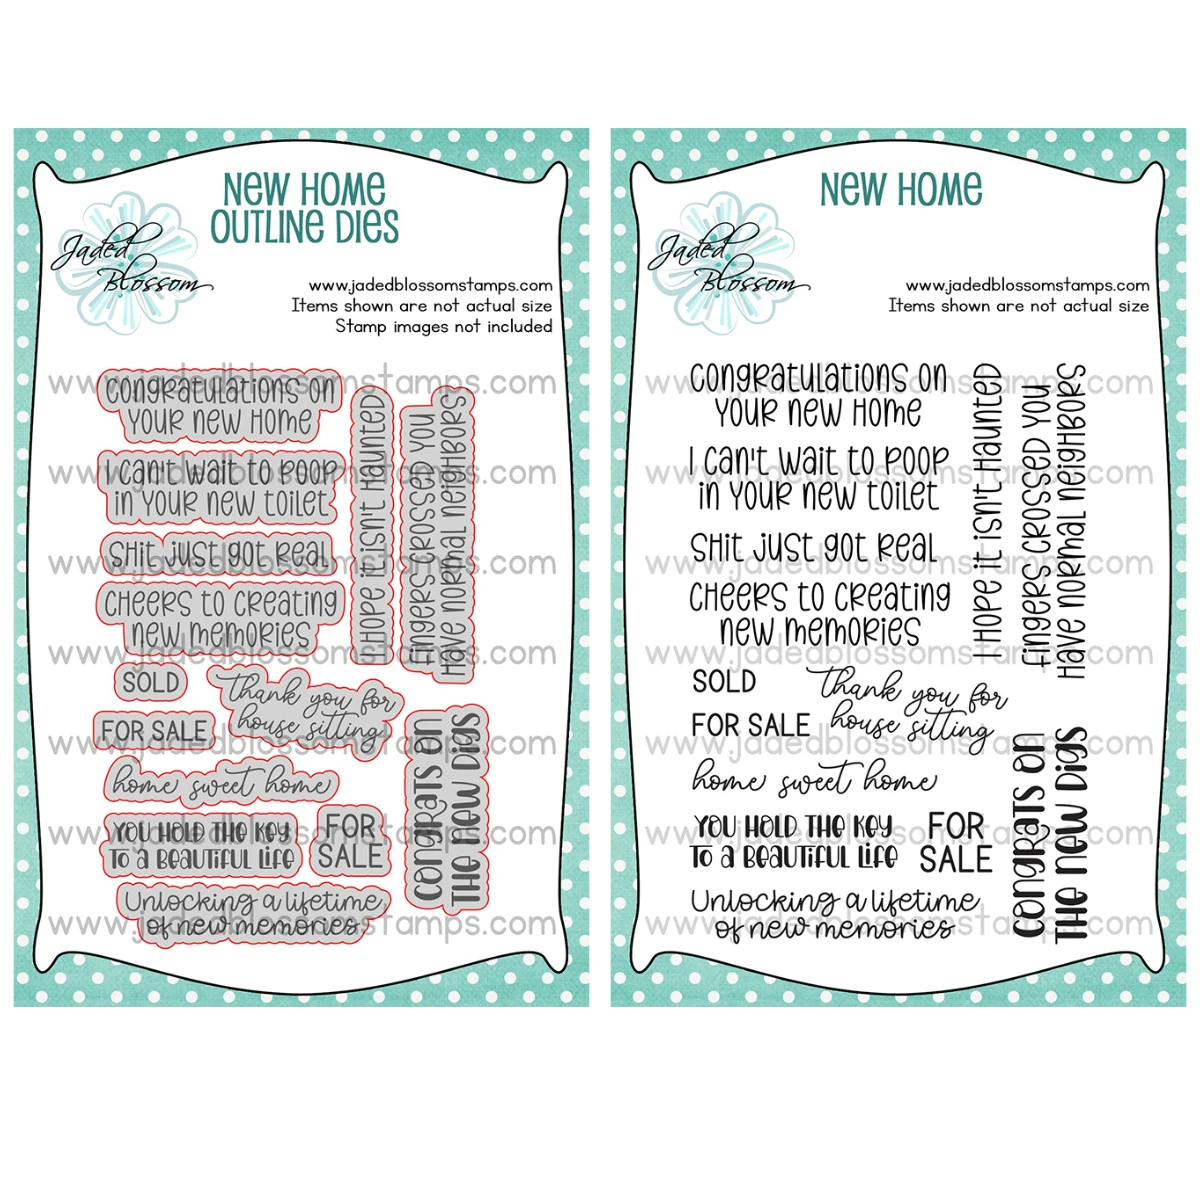 NEW HOME
OUTLINE DIES
Jaded
Blossom
www.jadedblossomstamps.com
Items shown are not actual size
Stamp images not included
www.jadedblossomstamps.com
congratulations on
your new home
www.jadedblossomstamps.com
I can't wait to poop
in your new toilet
www.jadedblossomstamps.com
shit just got real
cheers to creating
new memories
www.jadedblossomstamps.com
I hope it isn't haunted
fingers crossed you
have normal neighbors
SOLD
Thank you for
house sitting
FOR SALE
www.jadedblossomstamps.com
home sweet home
www.jadedblossomstamps.com
you hold the key
to a beautiful life
FOR
SALE
congrats on
the new digs
Unlocking a lifetime
of new memories
www.jadedblossomstamps.com
NEW HOME
Jaded
Blossom
www.jadedblossomstamps.com
Items shown are not actual size
www.jadedblossomstamps.com
congratulations on
your new home
www.jadedblossomstamps.com
I can't wait to poop
in your new toilet
www.jadedblossomstamps.com
shit just got real
cheers to creating
new memories
www.jadedblossomstamps.com
I hope it isn't haunted
fingers crossed you
have normal neighbors
SOLD
Thank you for
house sitting
FOR SALE
www.jadedblossomstamps.com
home sweet home
www.jadedblossomstamps.com
you hold the key
to a beautiful life
FOR
SALE
congrats on
the new digs
Unlocking a lifetime
of new memories
www.jadedblossomstamps.com